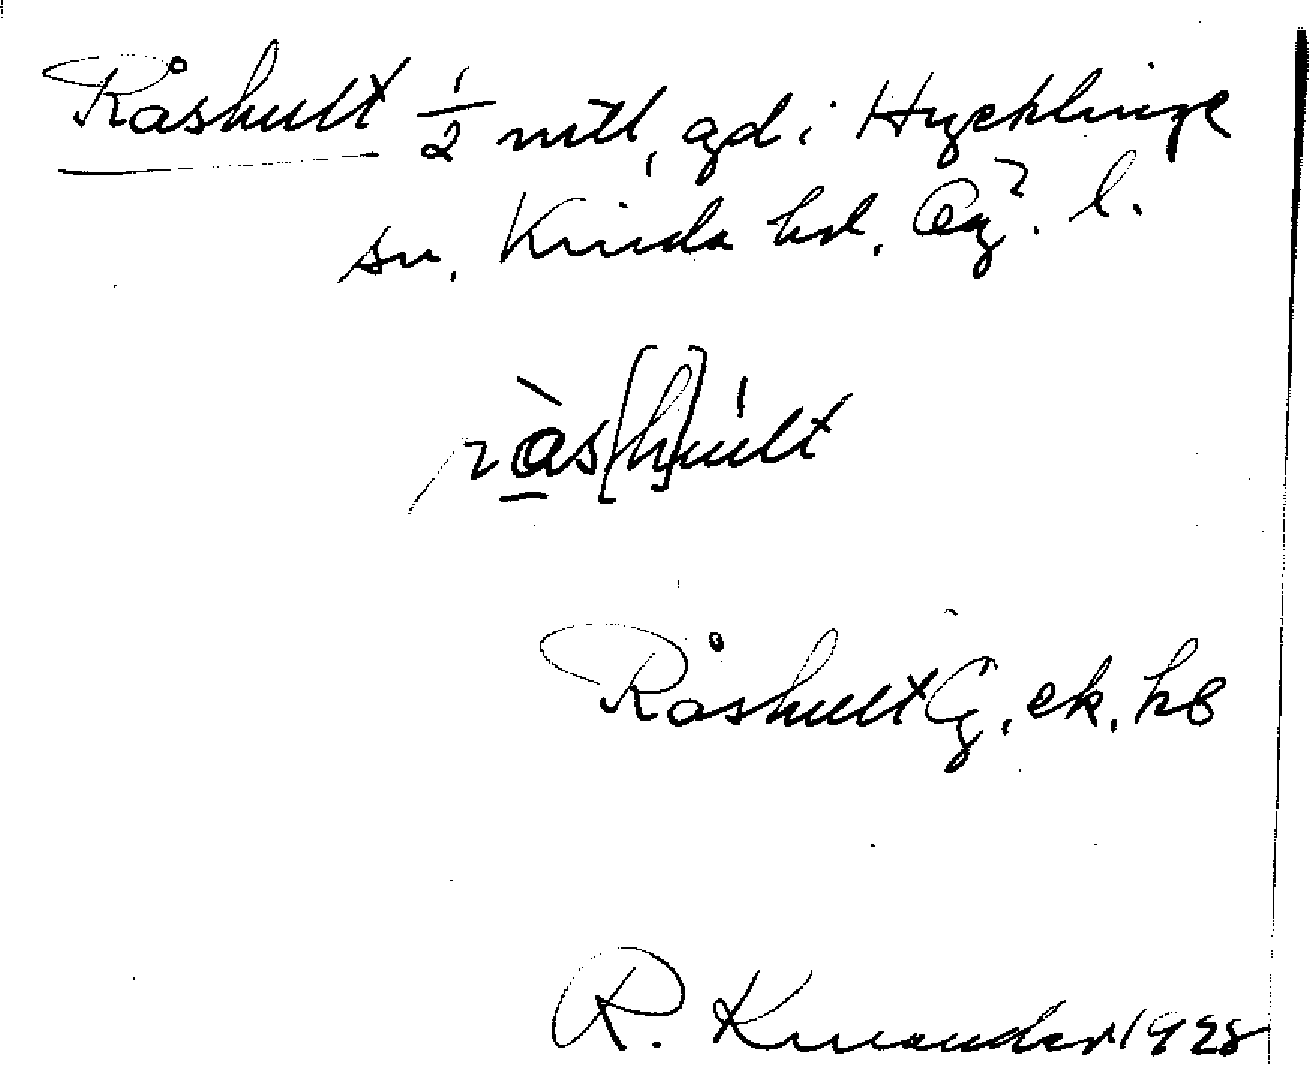 Råshult 1/2 mtl, gd i Hycklinge
sn, Kinda hd, Ög. l.
rås[h]ult
Råshult G, ek, hb
R. Knuander 1928